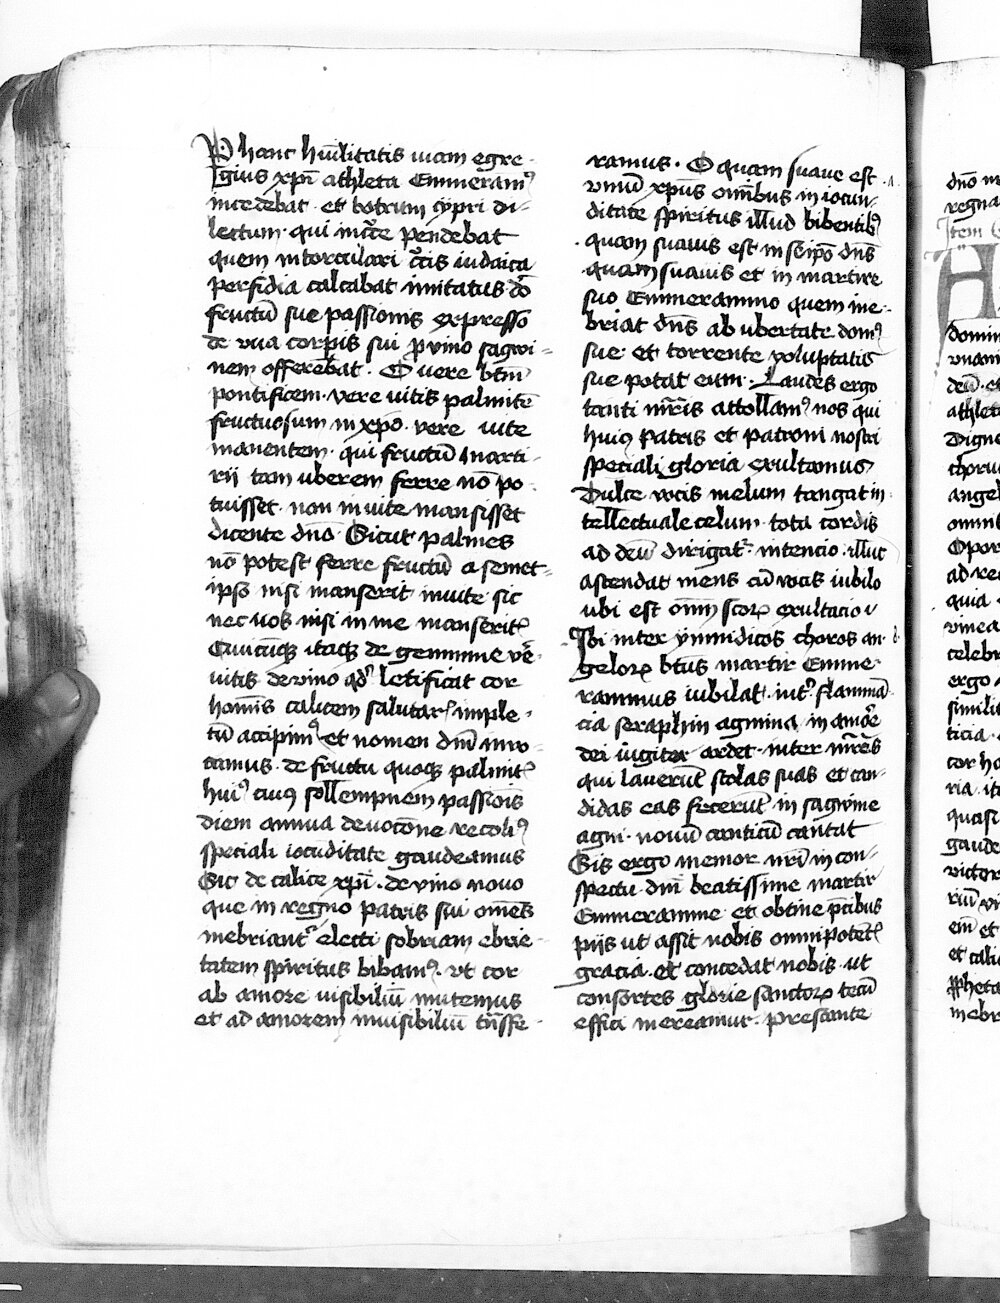 P hanc hūilitatis uiam egre-
gius xp̄i athleta Emmeramꝰ
incedebat et botrum cypri di-
lectum qui in cͣce pendebat
quem in torculari cͣcis iudaica
perfidia calcabat imitatus dō
fructū sue passionis expresso
de vua corpis sui p uino sagwi-
nem offerēbat. O vere btm̄
pontificem. vere uitis palmitē
fructuosum in xp̄o. vere uite
manentem. qui fructū marti-
rii tam uberem ferre nō po-
tuisset. non in uite mansisset
dicente dn̄o Sicut palmes
nō potest ferre fructū a semet-
ipso nisi manserit in uite sic
nec uos nisi in me manseritꝭ
Cuiuscūqꝫ itaqꝫ de gemmine vē-
uitis de vino qd̓ letificat cor
homīs calicem salutarꝭ imple-
tū accipimꝰ et nomen dn̄i inuo-
camus. de fructu quoqꝫ palmitꝭ
huiꝰ cuiꝰ sollempnem passiōis
diem annua deuocōne recoliꝰ
speciali iocūditate gaudeamus
Sic de calice xp̄i. de vino nouo
que in regno patris sui omēs
inebriantᷣ electi sobriam ebrie-
tatem spiritus bibamꝰ. vt cor
ab amore uisibiliū mutemus
et ad amorem inuisibiliū tͣnsfe-
ramus. O quam suaue est
vinū xp̄us om̄ibus in iocun-
ditate spiritus illud bibentibꝰ
quam suauis est in seip̄o dn̄s
quam suauis et in martire
suo Emmerammo quem ine-
briat dn̄s ab ubertate domꝰ
sue et torrente voluptatis
sue potat eum. Laudes ergo
tanti mr̄is attollamꝰ nos qui
huiꝰ patris et patroni nostri
speciali gloria exultamus
Dulce vocis melum tangat in-
tellectuale celum tota cordis
ad deū dirigatᷣ intencio illuc
ascendat mens cū vocis iubilo
ubi est om̄i sc̄oꝝ exultacio
Ibi inter ymnidicos choros an-
geloꝝ bt̄us martir Emme-
rammus iubilat. intͥ flamma-
cia seraphin agmina in amōre
dei iugiter ardet. inter mr̄es
qui lauerūt stolas suas et can-
didas eas fecerūt in sagwine
agni. nouū canticū cantat
Sis ergo memor nr̄i in con-
spectu dn̄i beatissime martir
Emmeramme et obtine p̄cibus
piis ut assit nobis omnipotētꝭ
gracia. et concedat nobis ut
consortes glorie sanctoꝝ tecū
effici mereamur. prestante